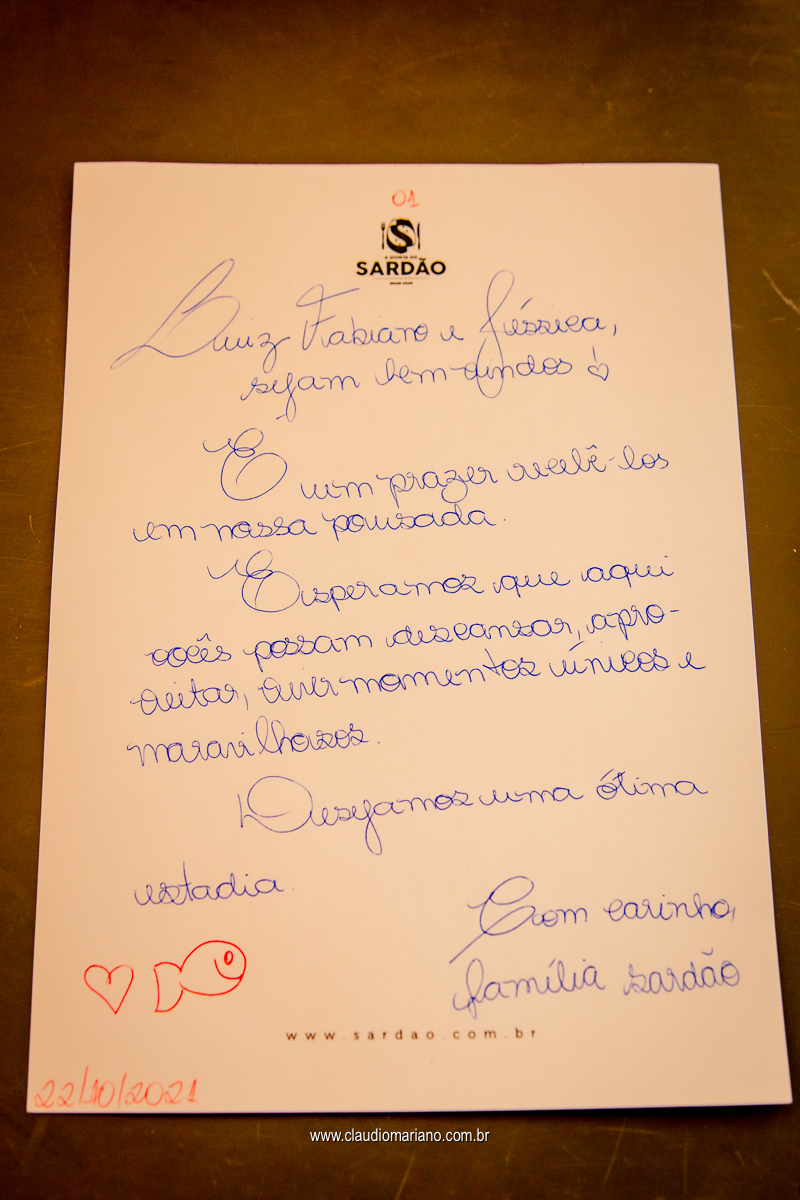 01
S
SARDÃO
Luiz Fabiano e Jéssica,
sejam bem-vindos!
É um prazer recebê-los
em nossa pousada.
Esperamos que aqui
vocês possam descansar, apro-
veitar, viver momentos únicos e
maravilhosos.
Desejamos uma ótima
estadia.
Com carinho,
família sardão
www.sardao.com.br
22/10/2021
www.claudiomariano.com.br